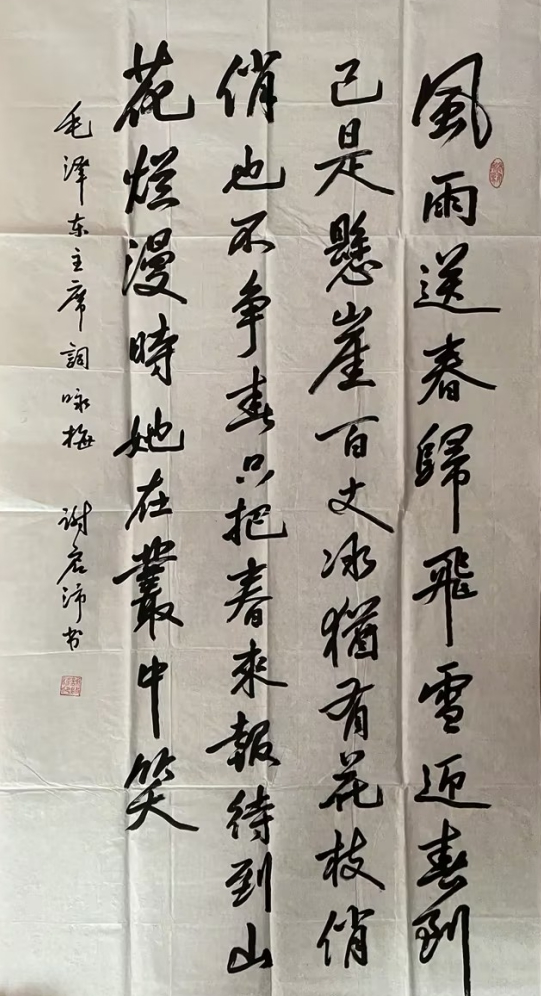 風雨送春歸飛雪迎春到
已是懸崖百丈冰猶有花枝俏
俏也不争春只把春來報待到山
花烂漫時她在叢中笑
毛泽东主席詞咏梅 谢宏沛书